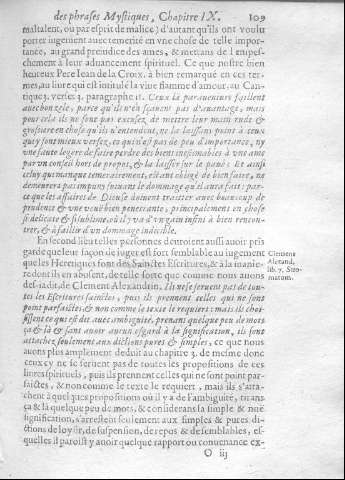 des phrases Mystiques, Chapitre IX. 109
maltalent, ou par esprit de malice) d'autant qu'ils ont voulu
porter iugement auec temerité en vne chose de telle impor-
tance, au grand preiudice des ames, & mettans de l'empes-
chement à leur aduancement spirituel. Ce que nostre bien
heureux Pere Iean de la Croix, à bien remarqué en ces ter-
mes, au liure qui est intitulé la viue flamme d'amour, au Can-
tique 3. verset 3. paragraphe 11. Ceux là parauenture faillent
auec bon zele, parce qu'ils n'en sçauent pas d'auantage, mais
pour cela ils ne sont pas excusez de mettre leur main rude &
grossiere en chose qu'ils n'entendent, ne la laissans point à ceux
qui y sont mieux versez, ce qui n'est pas de peu d'importance, ny
vne faute legere de faire perdre des biens inestimables à vne ame
par vn conseil hors de propos, & la laisser sur le paué: Et ainsi
celuy qui manque temerairement, estant obligé de bien faire, ne
demeurera pas impuny suiuans le dommage qu'il aura fait: par-
ce que les affaires de Dieu se doiuent traicter auec beaucoup de
prudence & vne veuë bien penetrante, principalement en chose
si delicate & si sublime, où il y va d'vn gain infini à bien rencon-
trer, & à faillir d'vn dommage indicible.
En second lieu telles personnes deuroient aussi auoir pris
garde que leur façon de iuger est fort semblable au iugement
que les Heretiques font des Sainctes Escritures, & à la manie-
re dont ils en abusent, de telle sorte que comme nous auons
desia dit, de Clement Alexandrin. Ils ne se seruent pas de tou-
tes les Escritures sacrées, puis ils prennent celles qui ne sont
point parfaictes & non comme le texte le requiert: mais ils choi-
sissent ce qui est dit auec ambiguité, prenans quelque peu de mots
çà & là & sans auoir aucun esgard à la signification, ils sont
attachez seulement aux dictions pures & simples, ce que nous
auons plus amplement deduit au chapitre 3. de mesme donc
ceux cy ne se seruent pas de toutes les propositions de ces
liures spirituels, puis ils prennent celles qui ne sont point par-
faictes, & non comme le texte le requiert, mais ils s'atta-
chent à quelques propositions où il y a de l'ambiguité, tirans
çà & là quelque peu de mots, & considerans la simple & nuë
signification, s'arrestent seulement aux simples & pures di-
ctions de loysir, de suspension, de repos & de semblables, es-
quelles il paroist y auoir quelque rapport ou conuenance ex-
O iij
Clemens
Alexand.
lib. 7. Stro-
matum.